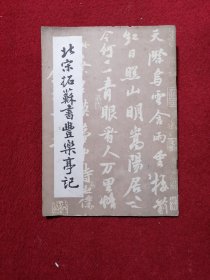 北宋拓蘇書豐樂亭記
天際烏雲含雨重樓前
紅日照山明嵩陽居士
今何在青眼看人萬里情